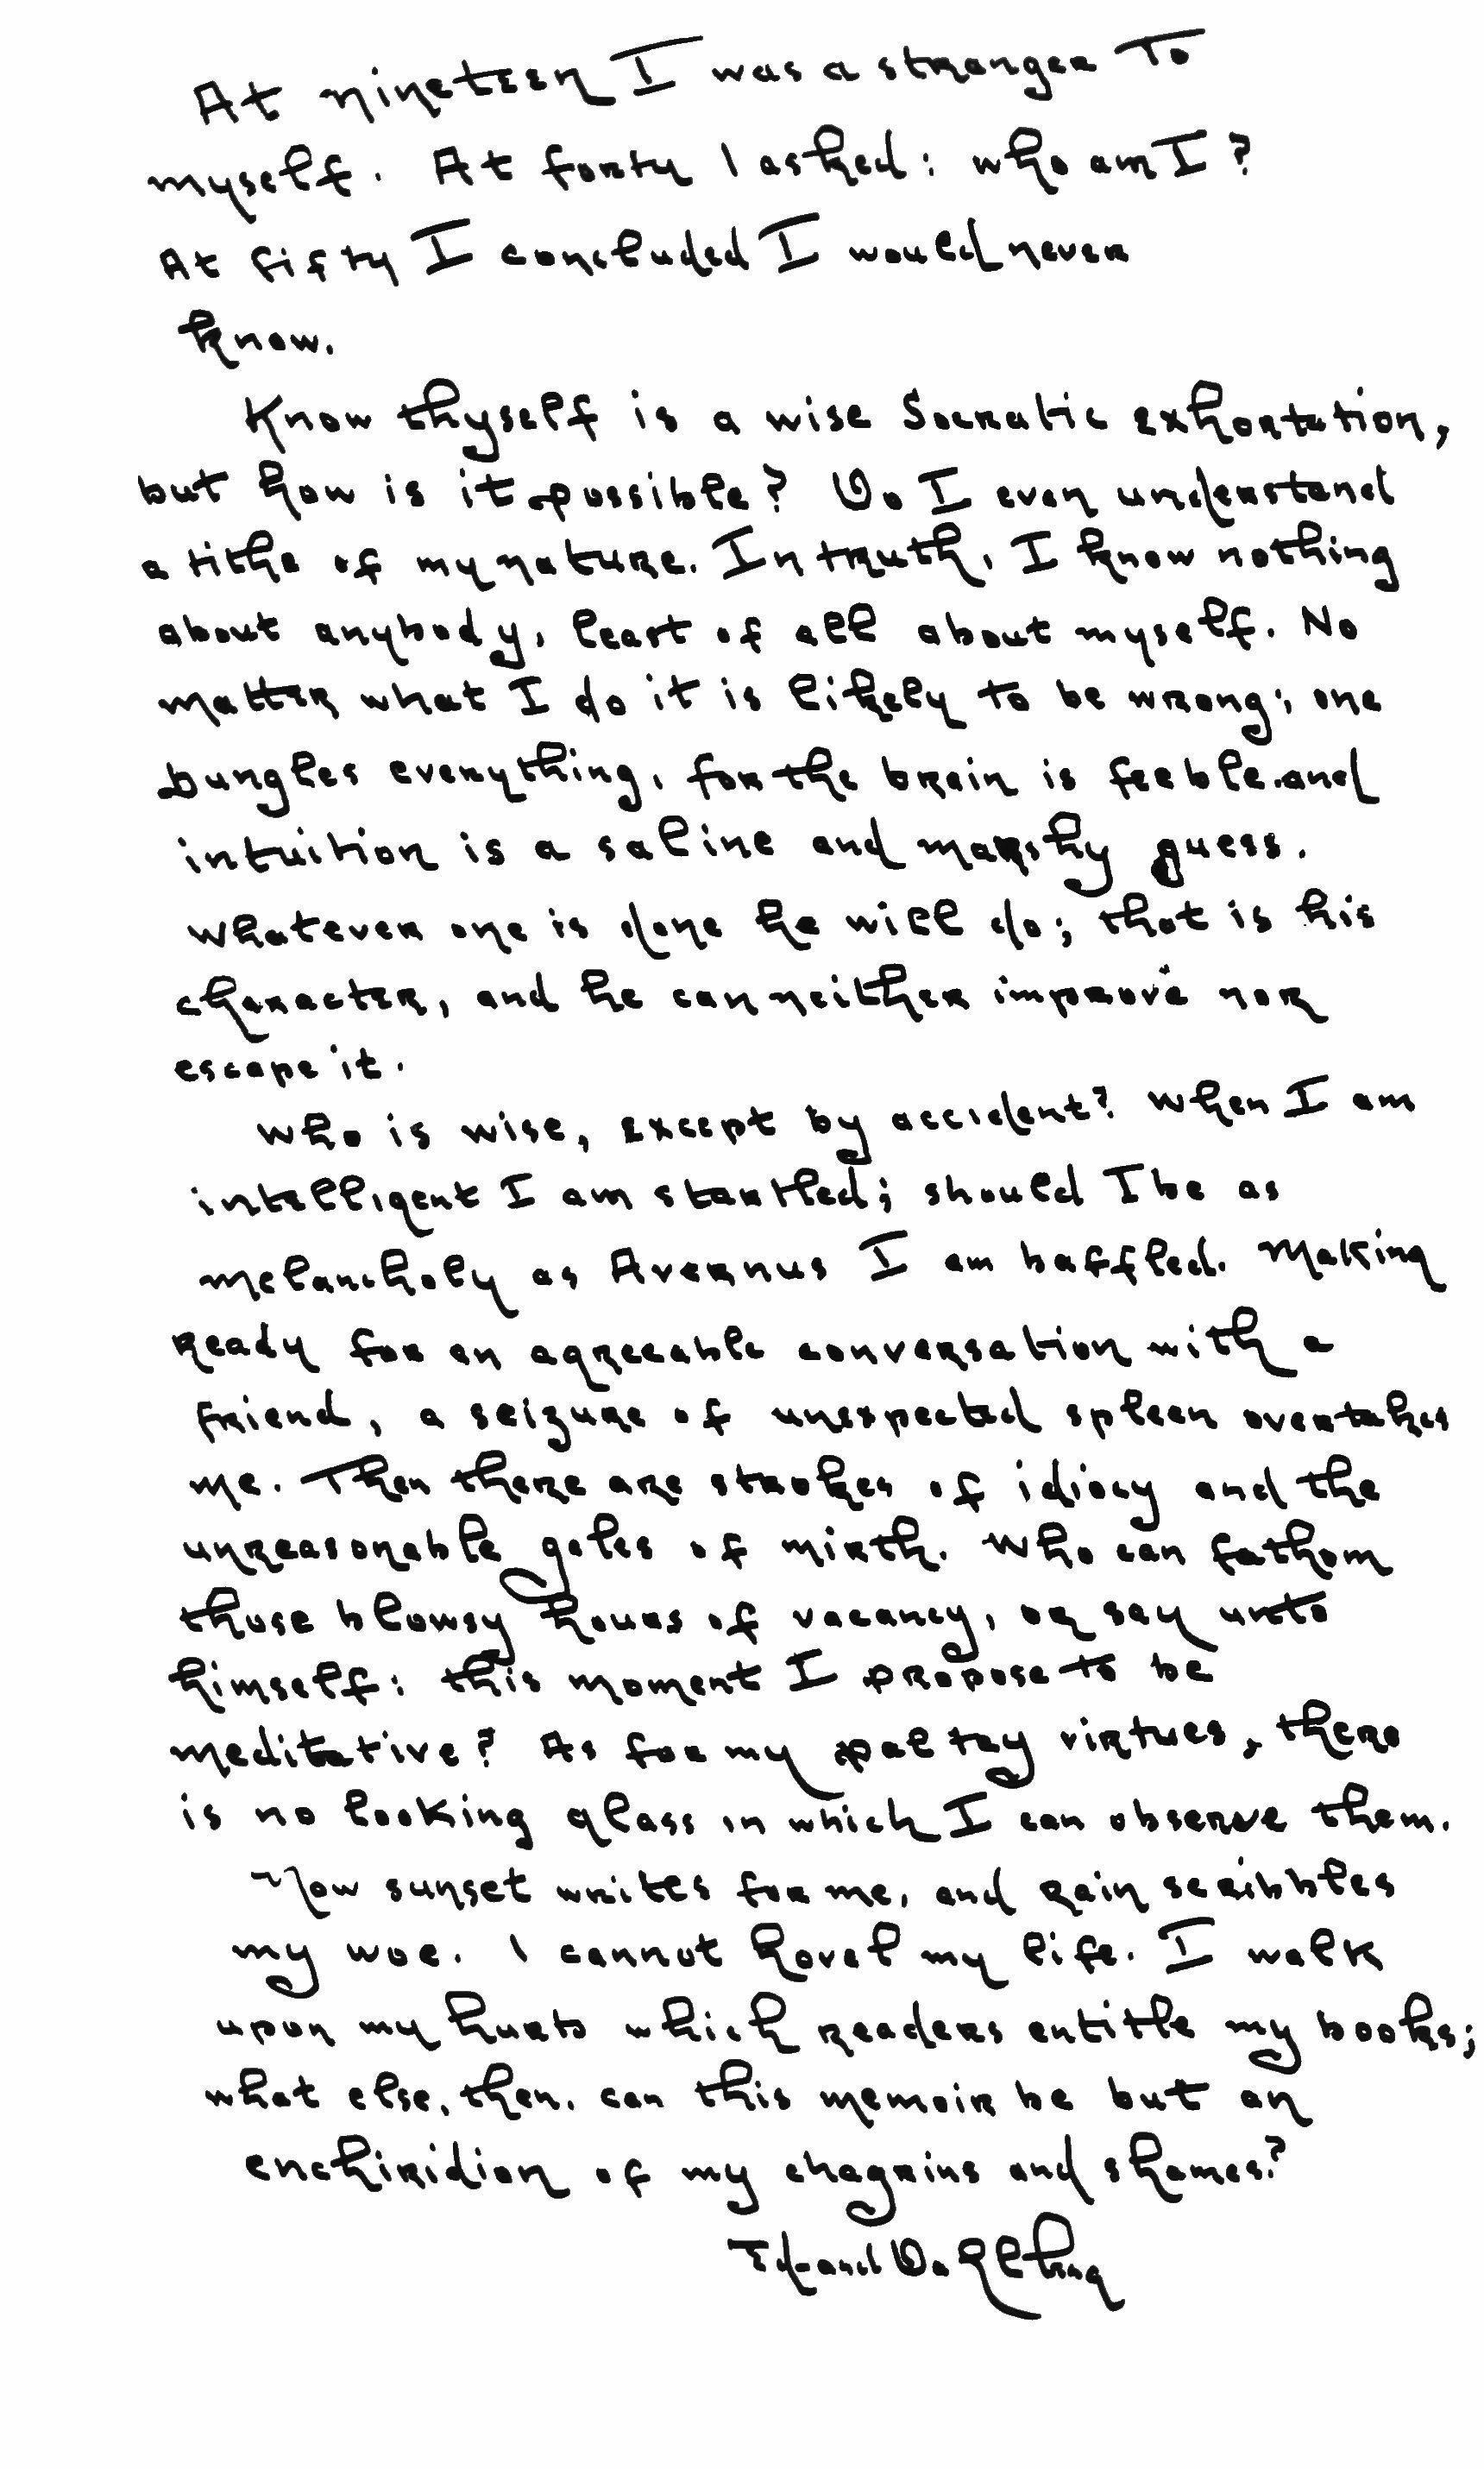 At nineteen I was a stranger to
myself. At forty I asked: who am I?
At fifty I concluded I would never
know.
Know thyself is a wise Socratic exhortation,
but how is it possible? Do I even understand
a tithe of my nature. In truth, I know nothing
about anybody, least of all about myself. No
matter what I do it is likely to be wrong; one
bungles everything, for the brain is feeble.and
intuition is a saline and marshy guess.
Whatever one is done he will do; that is his
character, and he can neither improve nor
escape it.
Who is wise, except by accident? When I am
intelligent I am startled; should I be as
melancholy as Avernus I am baffled. Making
ready for an agreeable conversation with a
friend, a seizure of unexpected spleen overtakes
me. Then there are strokes of idiocy and the
unreasonable gales of mirth. Who can fathom
those blowsy hours of vacancy, or say unto
himself: this moment I propose to be
meditative? As for my paltry virtues, there
is no looking glass in which I can observe them.
Now sunset writes for me, and rain scribbles
my woe. I cannot hovel my life. I walk
upon my hurts which readers entitle my books;
what else, then, can this memoir be but an
enchiridion of my chagrins and shames?
Edward Dahlberg